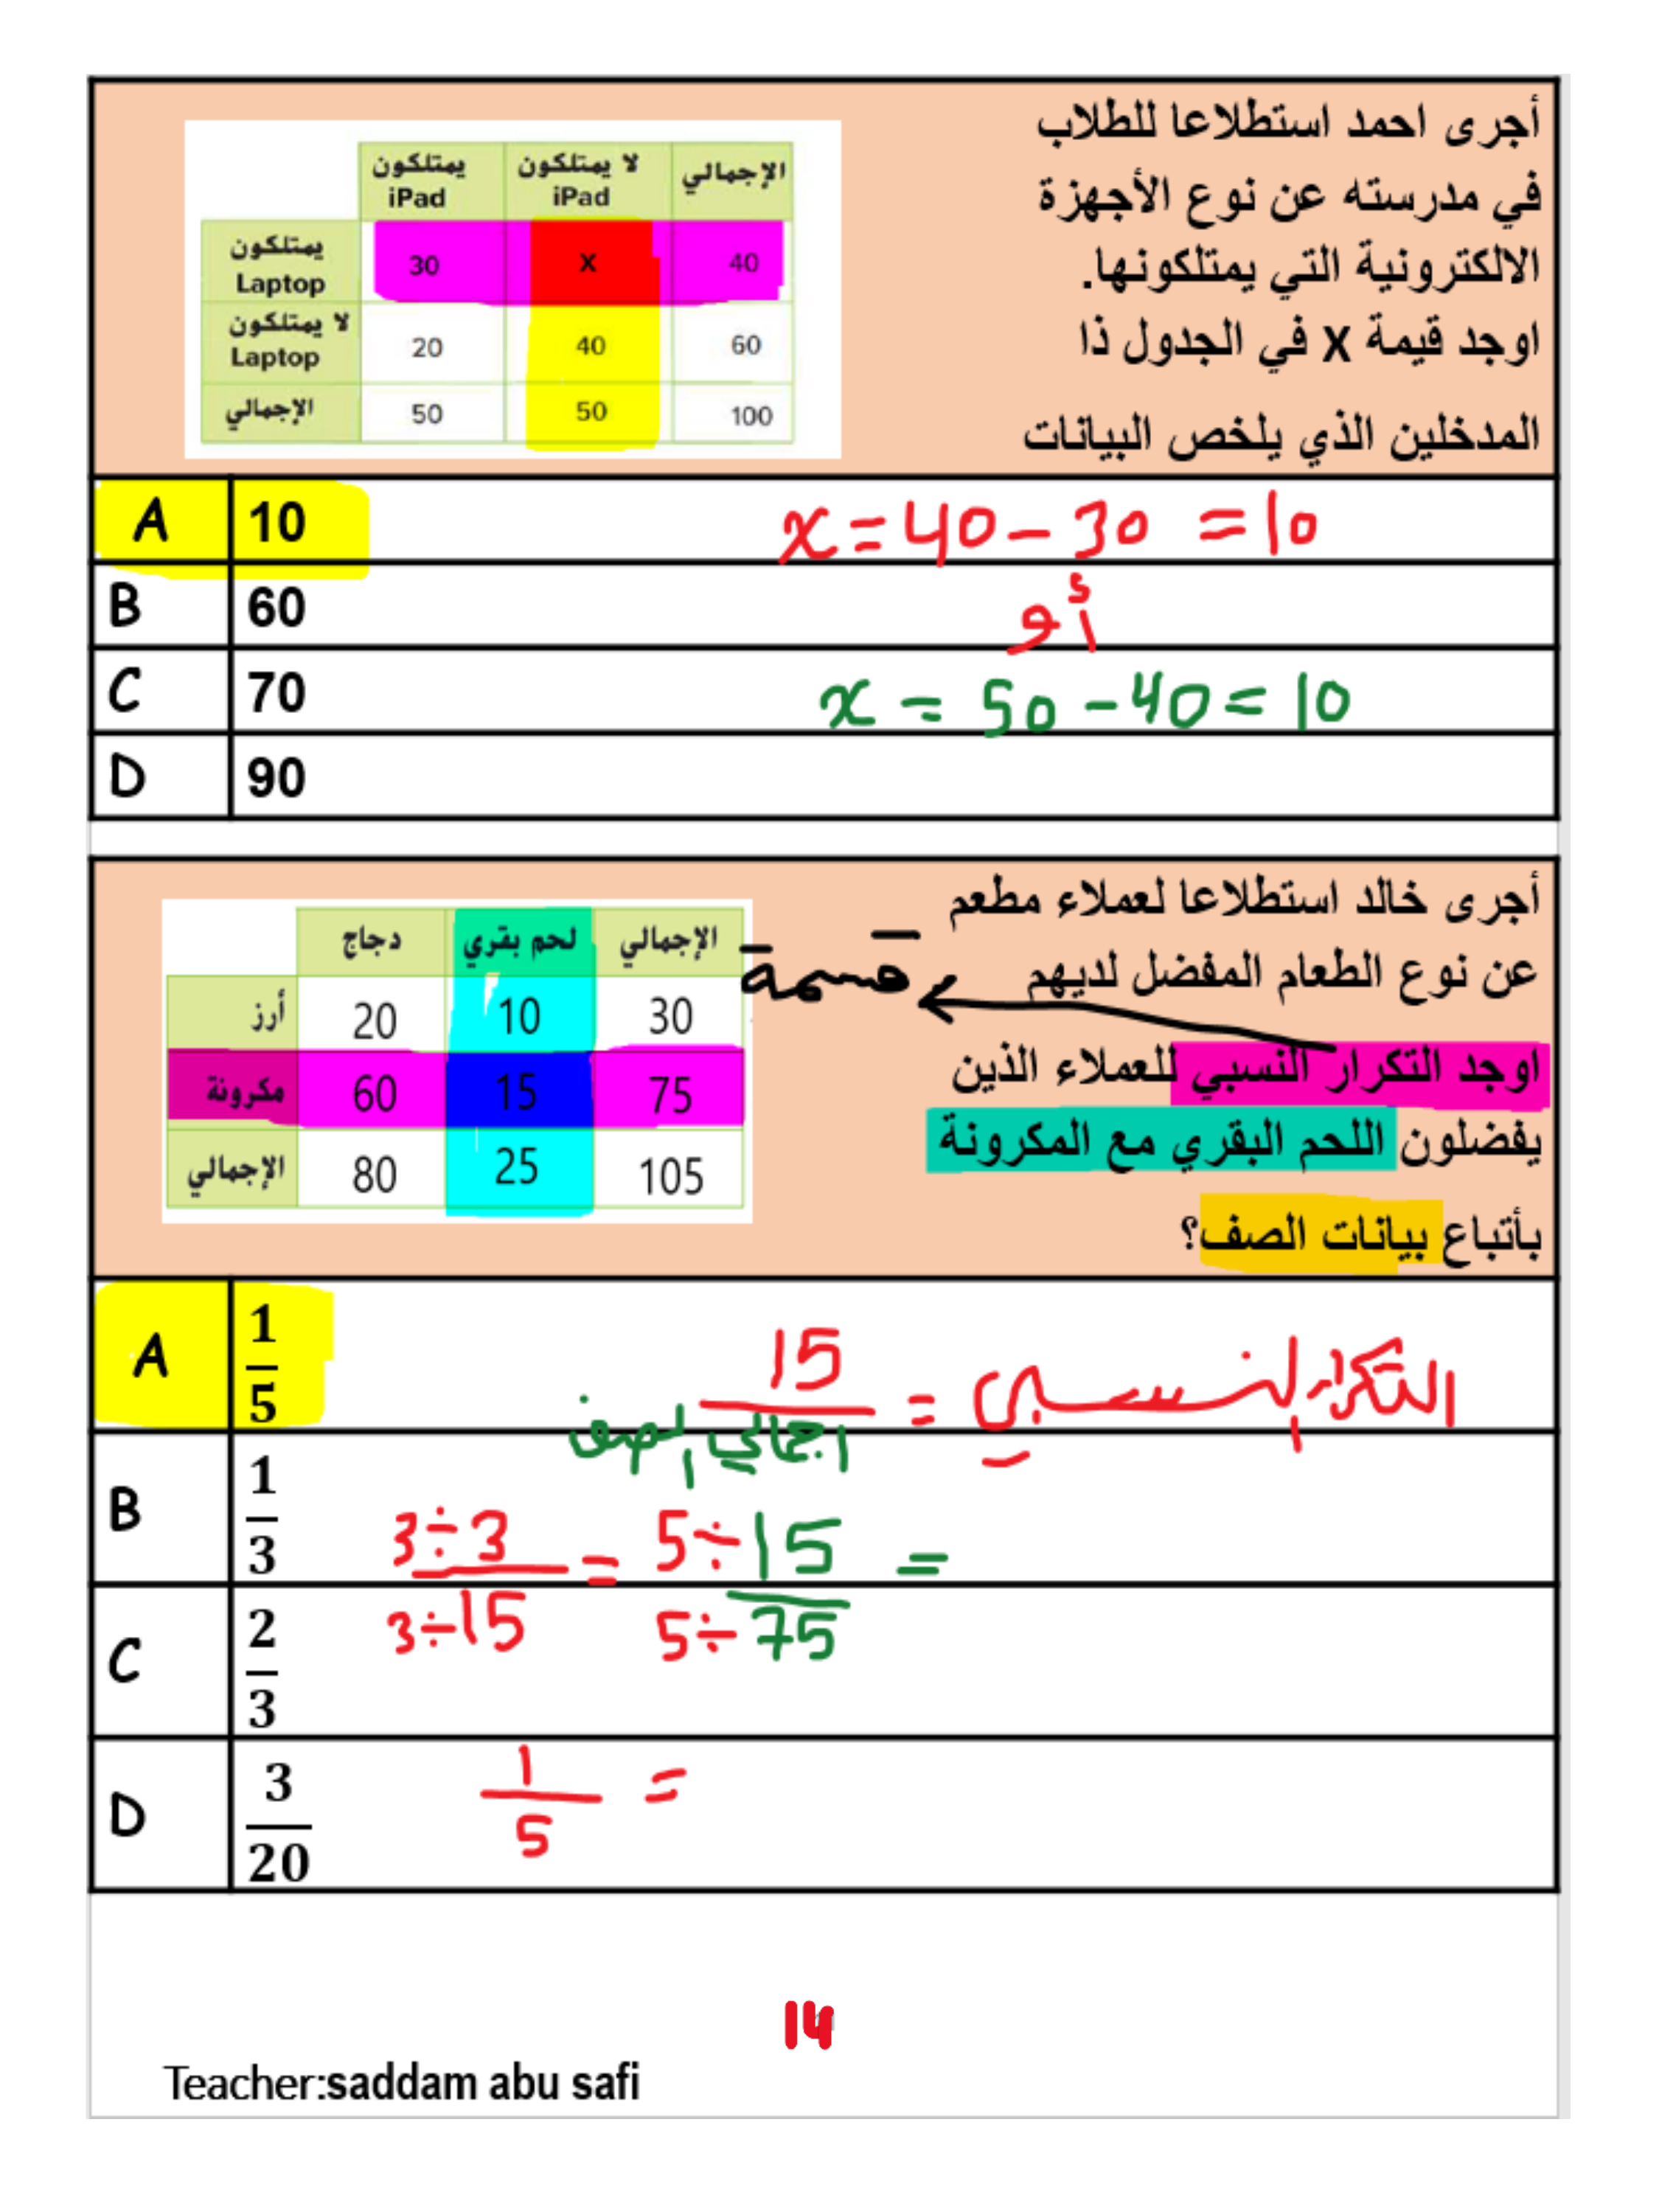 أجرى احمد استطلاعا للطلاب
في مدرسته عن نوع الأجهزة
الالكترونية التي يمتلكونها.
اوجد قيمة X في الجدول ذا
المدخلين الذي يلخص البيانات
يمتلكون iPad	لا يمتلكون iPad	الإجمالي
يمتلكون Laptop	30	X	40
لا يمتلكون Laptop	20	40	60
الإجمالي	50	50	100
A	10	x = 40 - 30 = 10
B	60	أو
C	70	x = 50 - 40 = 10
D	90
أجرى خالد استطلاعا لعملاء مطعم
عن نوع الطعام المفضل لديهم
قسمة
اوجد التكرار النسبي للعملاء الذين
يفضلون اللحم البقري مع المكرونة
بأتباع بيانات الصف؟
دجاج	لحم بقري	الإجمالي
أرز	20	10	30
مكرونة	60	15	75
الإجمالي	80	25	105
A	1/5
التكرار النسبي = 15 / اجمالي الصف
B	1/3
= 5÷15 / 5÷75 = 3÷3 / 3÷15
C	2/3
D	3/20
= 1/5
14
Teacher:saddam abu safi